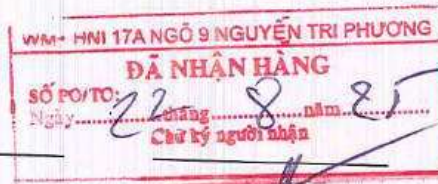 WM+ HNI 17A NGÕ 9 NGUYỄN TRI PHƯƠNG
ĐÃ NHẬN HÀNG
SỐ PO/TO:
Ngày 22 tháng 8 năm 25
Chữ ký người nhận